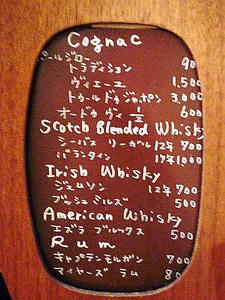 Cognac
ポールジロー
トラディション 900
ヴィエーユ 1,500
トゥールドゥジャポン 3,000
オードゥヴィ 1/2 600
Scotch Blended Whisky
シーバス リーガル 12年 700
バランタイン 17年 1000
Irish Whisky
ジェムソン 12年 700
ブッシュミルズ 500
American Whisky
エズラ ブルックス 500
Rum
キャプテンモルガン 700
マイヤーズ ラム